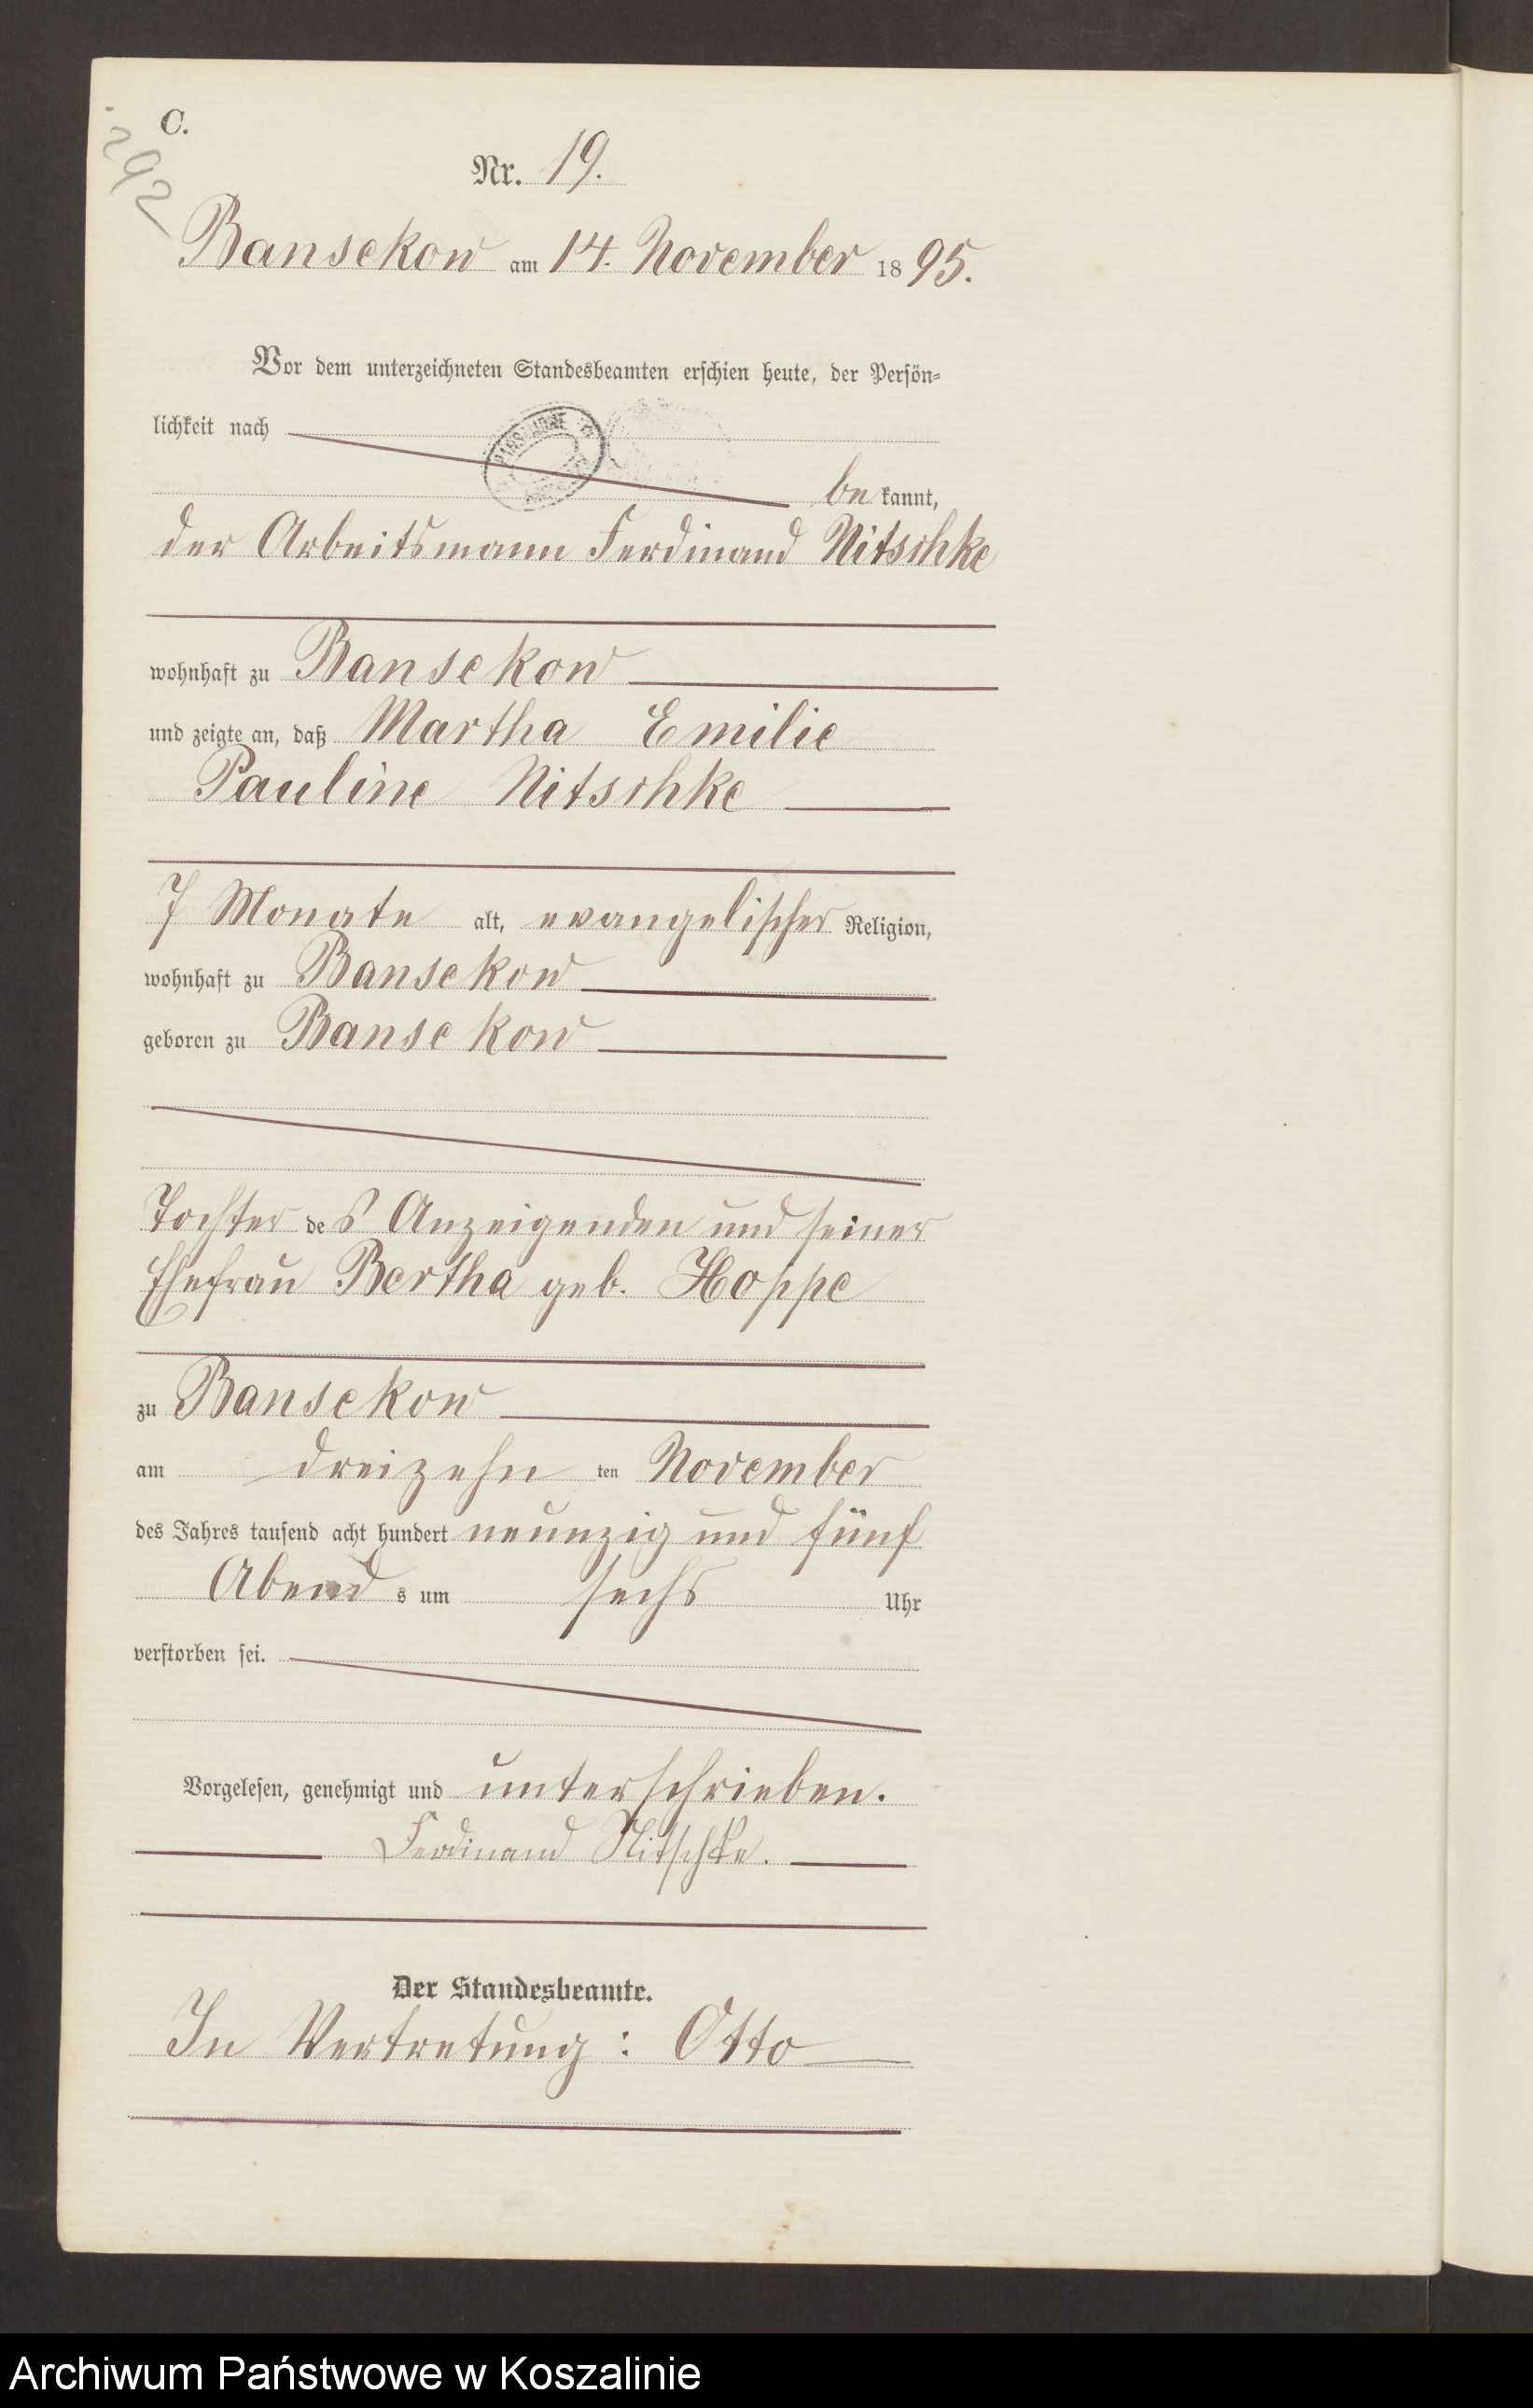 C.
292
Nr. 19.
Bansekow am 14. November 1895.
Vor dem unterzeichneten Standesbeamten erschien heute, der Persön-
lichkeit nach
bekannt,
der Arbeitsmann Ferdinand Nitschke
wohnhaft zu Bansekow
und zeigte an, daß Martha Emilie
Pauline Nitschke
7 Monate alt, evangelischer Religion,
wohnhaft zu Bansekow
geboren zu Bansekow
Tochter des Anzeigenden und seiner
Ehefrau Bertha geb. Hoppe
zu Bansekow
am dreizehnten November
des Jahres tausend acht hundert neunzig und fünf
Abends um sechs Uhr
verstorben sei.
Vorgelesen, genehmigt und unterschrieben.
Ferdinand Nitschke.
Der Standesbeamte.
In Vertretung: Otto
Archiwum Państwowe w Koszalinie